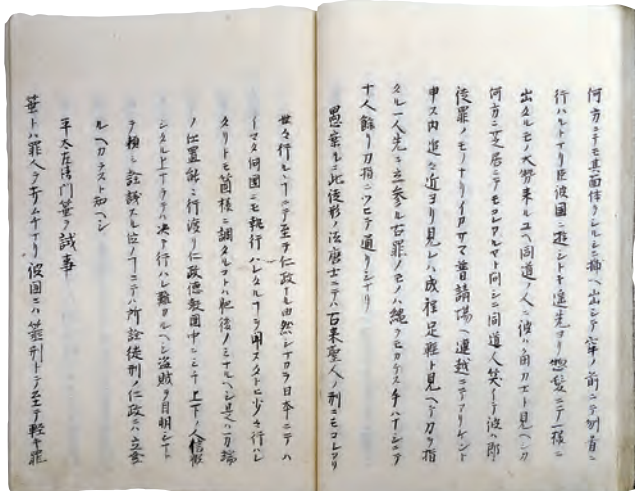 何方ニテモ其面体ヲシルシニ捕ヘ出シテ牢ノ前ニテ刎首ニ
行ハルト アリ臣彼国ニ遊シトキ遥先ヨリ惣髪ニテ一様ニ
出タルモノ大勢来ルユヘ同道ノ人ニ彼ハ角力士ト見ヘシカ
何方ニ芝居ニテモコレアルヤト問シニ同道人笑イテ彼ハ即
徒罪ノモノナリイカサマ普請場ヘ運越ニテアリケント
申ス内追々近ヨリ見レハ成程足軽ト見ヘテ刀ヲ指
タル一人先ニ立参ル右罪ノモノハ縄ヲモカケスチハナシニテ
十人餘リ刀指ニツヒテ通リシナリ
愚案ルニ此徒刑ノ法唐土ニテハ古来聖人ノ刑ニモコレアリ
世々行ルヽ ニテ至テ仁政 ル由然シナカラ日本ニテハ
イマタ何国ニモ執行ハレタル ヲ聞スタトヒ少々行ハレ
タリトモ箇様ニ調タル ハ肥後ノミナルヘシ是ハ万端
ノ仕置能ニ行渡リ仁政徳教国中ニシテ上下ノ人信服
シタル上ナラテハ決テ行ハレ難カルヘシ盗賊ヲ目明シナト
ヲ頼ミ詮議スル位ノ ニテハ所詮徒刑ノ仁政ハ立
ルヘカラスト知ヘシ
平太左衛門 ヲ誡事
トハ罪人ヲ ナリ彼国ニハ笞刑トテ至テ軽キ罪